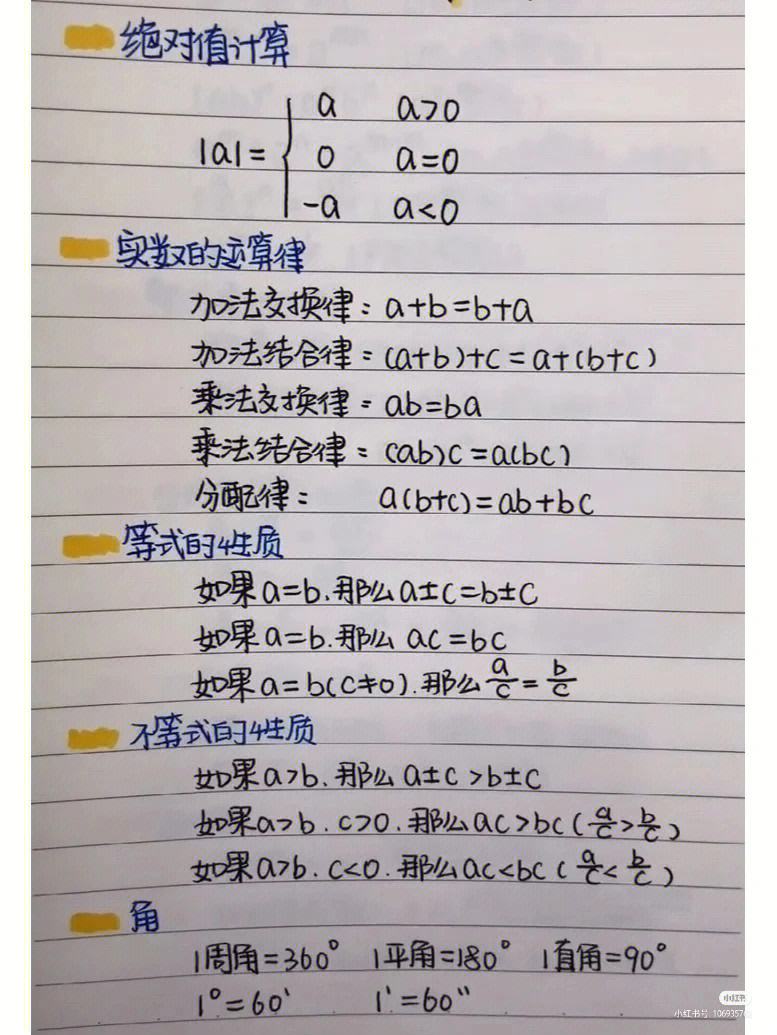 绝对值计算
|a|= { a a>0
0 a=0
-a a<0
实数的运算律
加法交换律: a+b=b+a
加法结合律: (a+b)+c=a+(b+c)
乘法交换律: ab=ba
乘法结合律: (ab)c=a(bc)
分配律: a(b+c)=ab+bc
等式的性质
如果a=b.那么a±c=b±c
如果a=b.那么ac=bc
如果a=b(c≠0).那么a/c=b/c
不等式的性质
如果a>b.那么a±c>b±c
如果a>b.c>0.那么ac>bc(a/c>b/c)
如果a>b.c<0.那么ac<bc(a/c<b/c)
角
1周角=360° 1平角=180° 1直角=90°
1°=60′ 1′=60″
小红书
小红书号